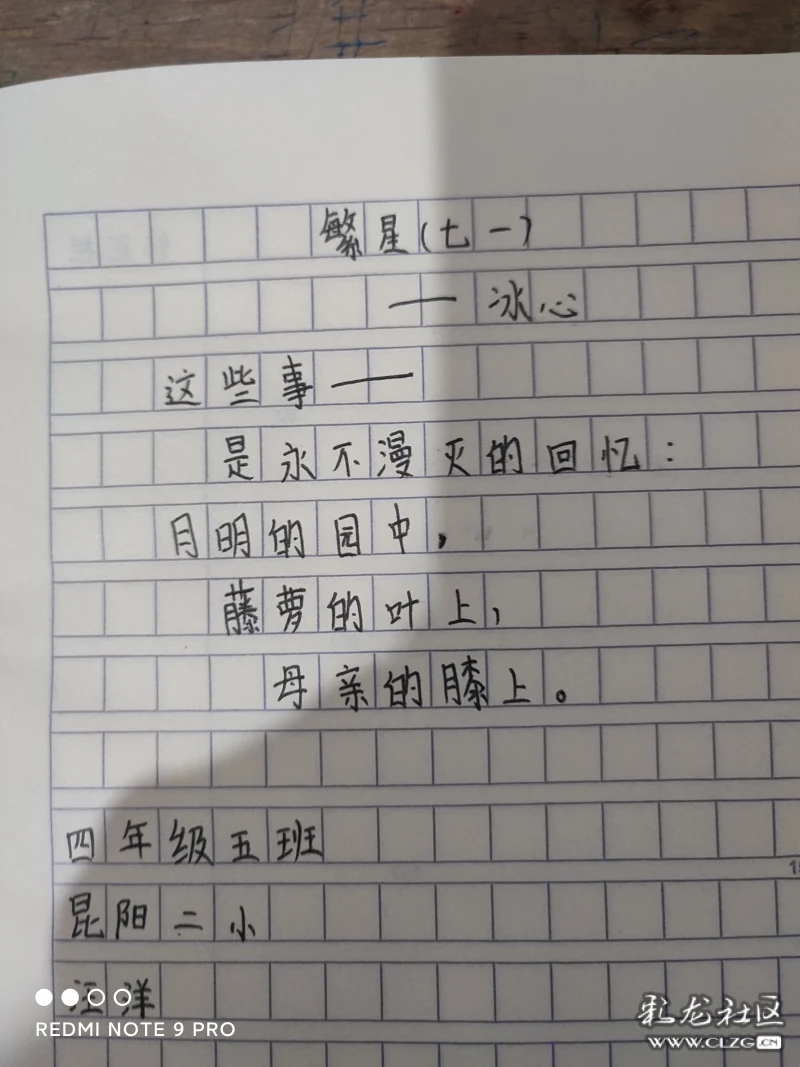 繁星（七一）
——冰心
这些事——
是永不漫灭的回忆：
月明的园中，
藤萝的叶上，
母亲的膝上。
四年级五班
昆阳二小
汪洋
REDMI NOTE 9 PRO
彩龙社区
WWW.CLZG.CN